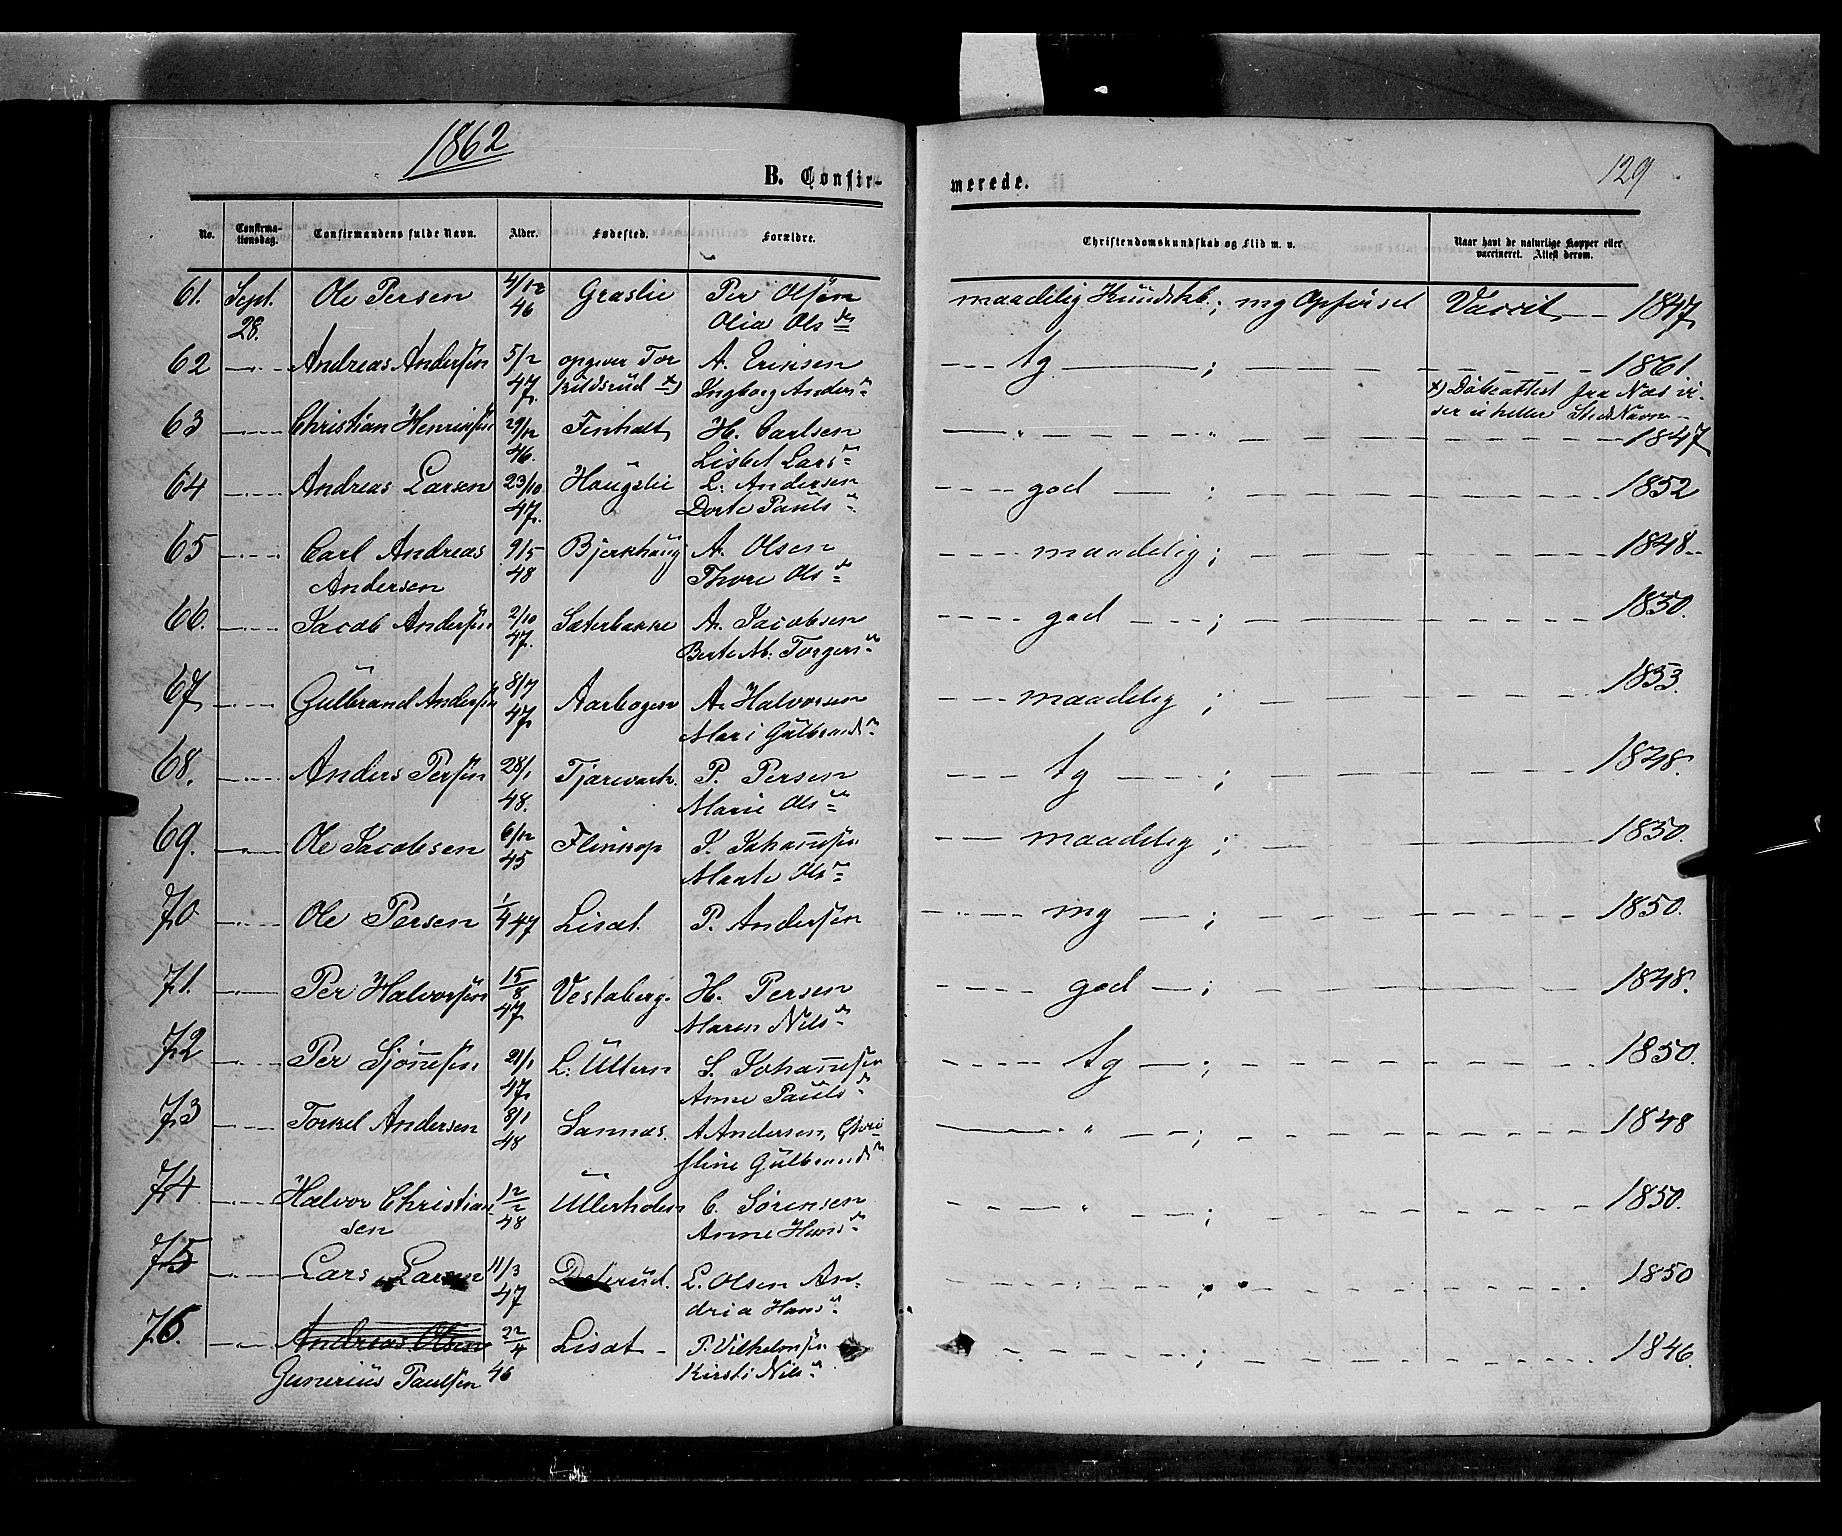 1862
129
B. Confir-
merede.
No.
Confirma-
tionsdag.
Confirmandens fulde Navn.
Alder.
Fødested.
Forældre.
Christendomskundskab og Flid m. v.
Naar havt de naturlige Kopper eller
vaccineret. Attest derom.
61. Sept. 28. Ole Persen 4/12 46 Graslie Per Olsøn
Olia Olsdr
maadelig Kundskb.; mg Opførsel Vaccit — 1847
62 —"— Andreas Andersøn 5/2 47 opgiver Tor A. Eriksen
kildsrud x) Ingborg Andersdr
— tg — ; — 1861
x) Døbeattest fra Næs vi-
ser ei heller Stedts Navn —
63 —"— Christian Henriksøn 29/12 46. Finholt H. Carlsen
Lisbet Larsdr
— " — " — 1847
64 —"— Andreas Larsen 23/10 47. Haugslie L. Andersen
Dorte Paulsdr
— god — ; — 1852
65 —"— Carl Andreas 9/5 48 Bjerkhaug A. Olsen
Andersen Thore Olsdr
— maadelig ; — 1848
66. —"— Jacob Andersøn 2/10 47. Sæterbakke A. Jacobsen
Berte M. Torgersdr
— god — ; — 1850.
67 —"— Gulbrand Andersøn 8/7 47. Aarbogen A. Halvorsen
Mari Gulbrandsdr
— maadelig ; — 1853.
68. —"— Anders Persøn 28/1 48. P. Persen
Marie Olsdr
— tg — ; — 1848.
69. —"— Ole Jacobsen 6/12 45 J. Johannesen
Marte Olsdr
— maadelig ; — 1850.
70 —"— Ole Persen 1/4 47 Lisæt. P. Andersøn
— mg — ; — 1850.
71. —"— Per Halvorsøn 15/8 47 Vestaberg. H. Persen
Maren Nilsdr
— god — ; — 1848.
72 —"— Per Sjønnesøn 21/1 47. L. Ullern S. Johannesøn
Anne Paulsdr
— tg — ; — 1850.
73 —"— Torkel Andersen 8/1 48 Sannæs. A Andersen, Chri-
stine Gulbrandsdr
— " — ; — 1848
74 —"— Halvor Christian 12/2 48 Ullerholen C. Sørensen
sen Anne Hansdr
— " — ; — 1850.
75 —"— Lars Larsen 11/3 47 L. Olsen An-
dria Hansdr
— ; — 1850
76. —"— Andreas Olsen 22/4 46 Lisæt — P. Vilhelmsøn
Gunerius Paulsøn Kirsti Nilsdr
— ; — 1846.